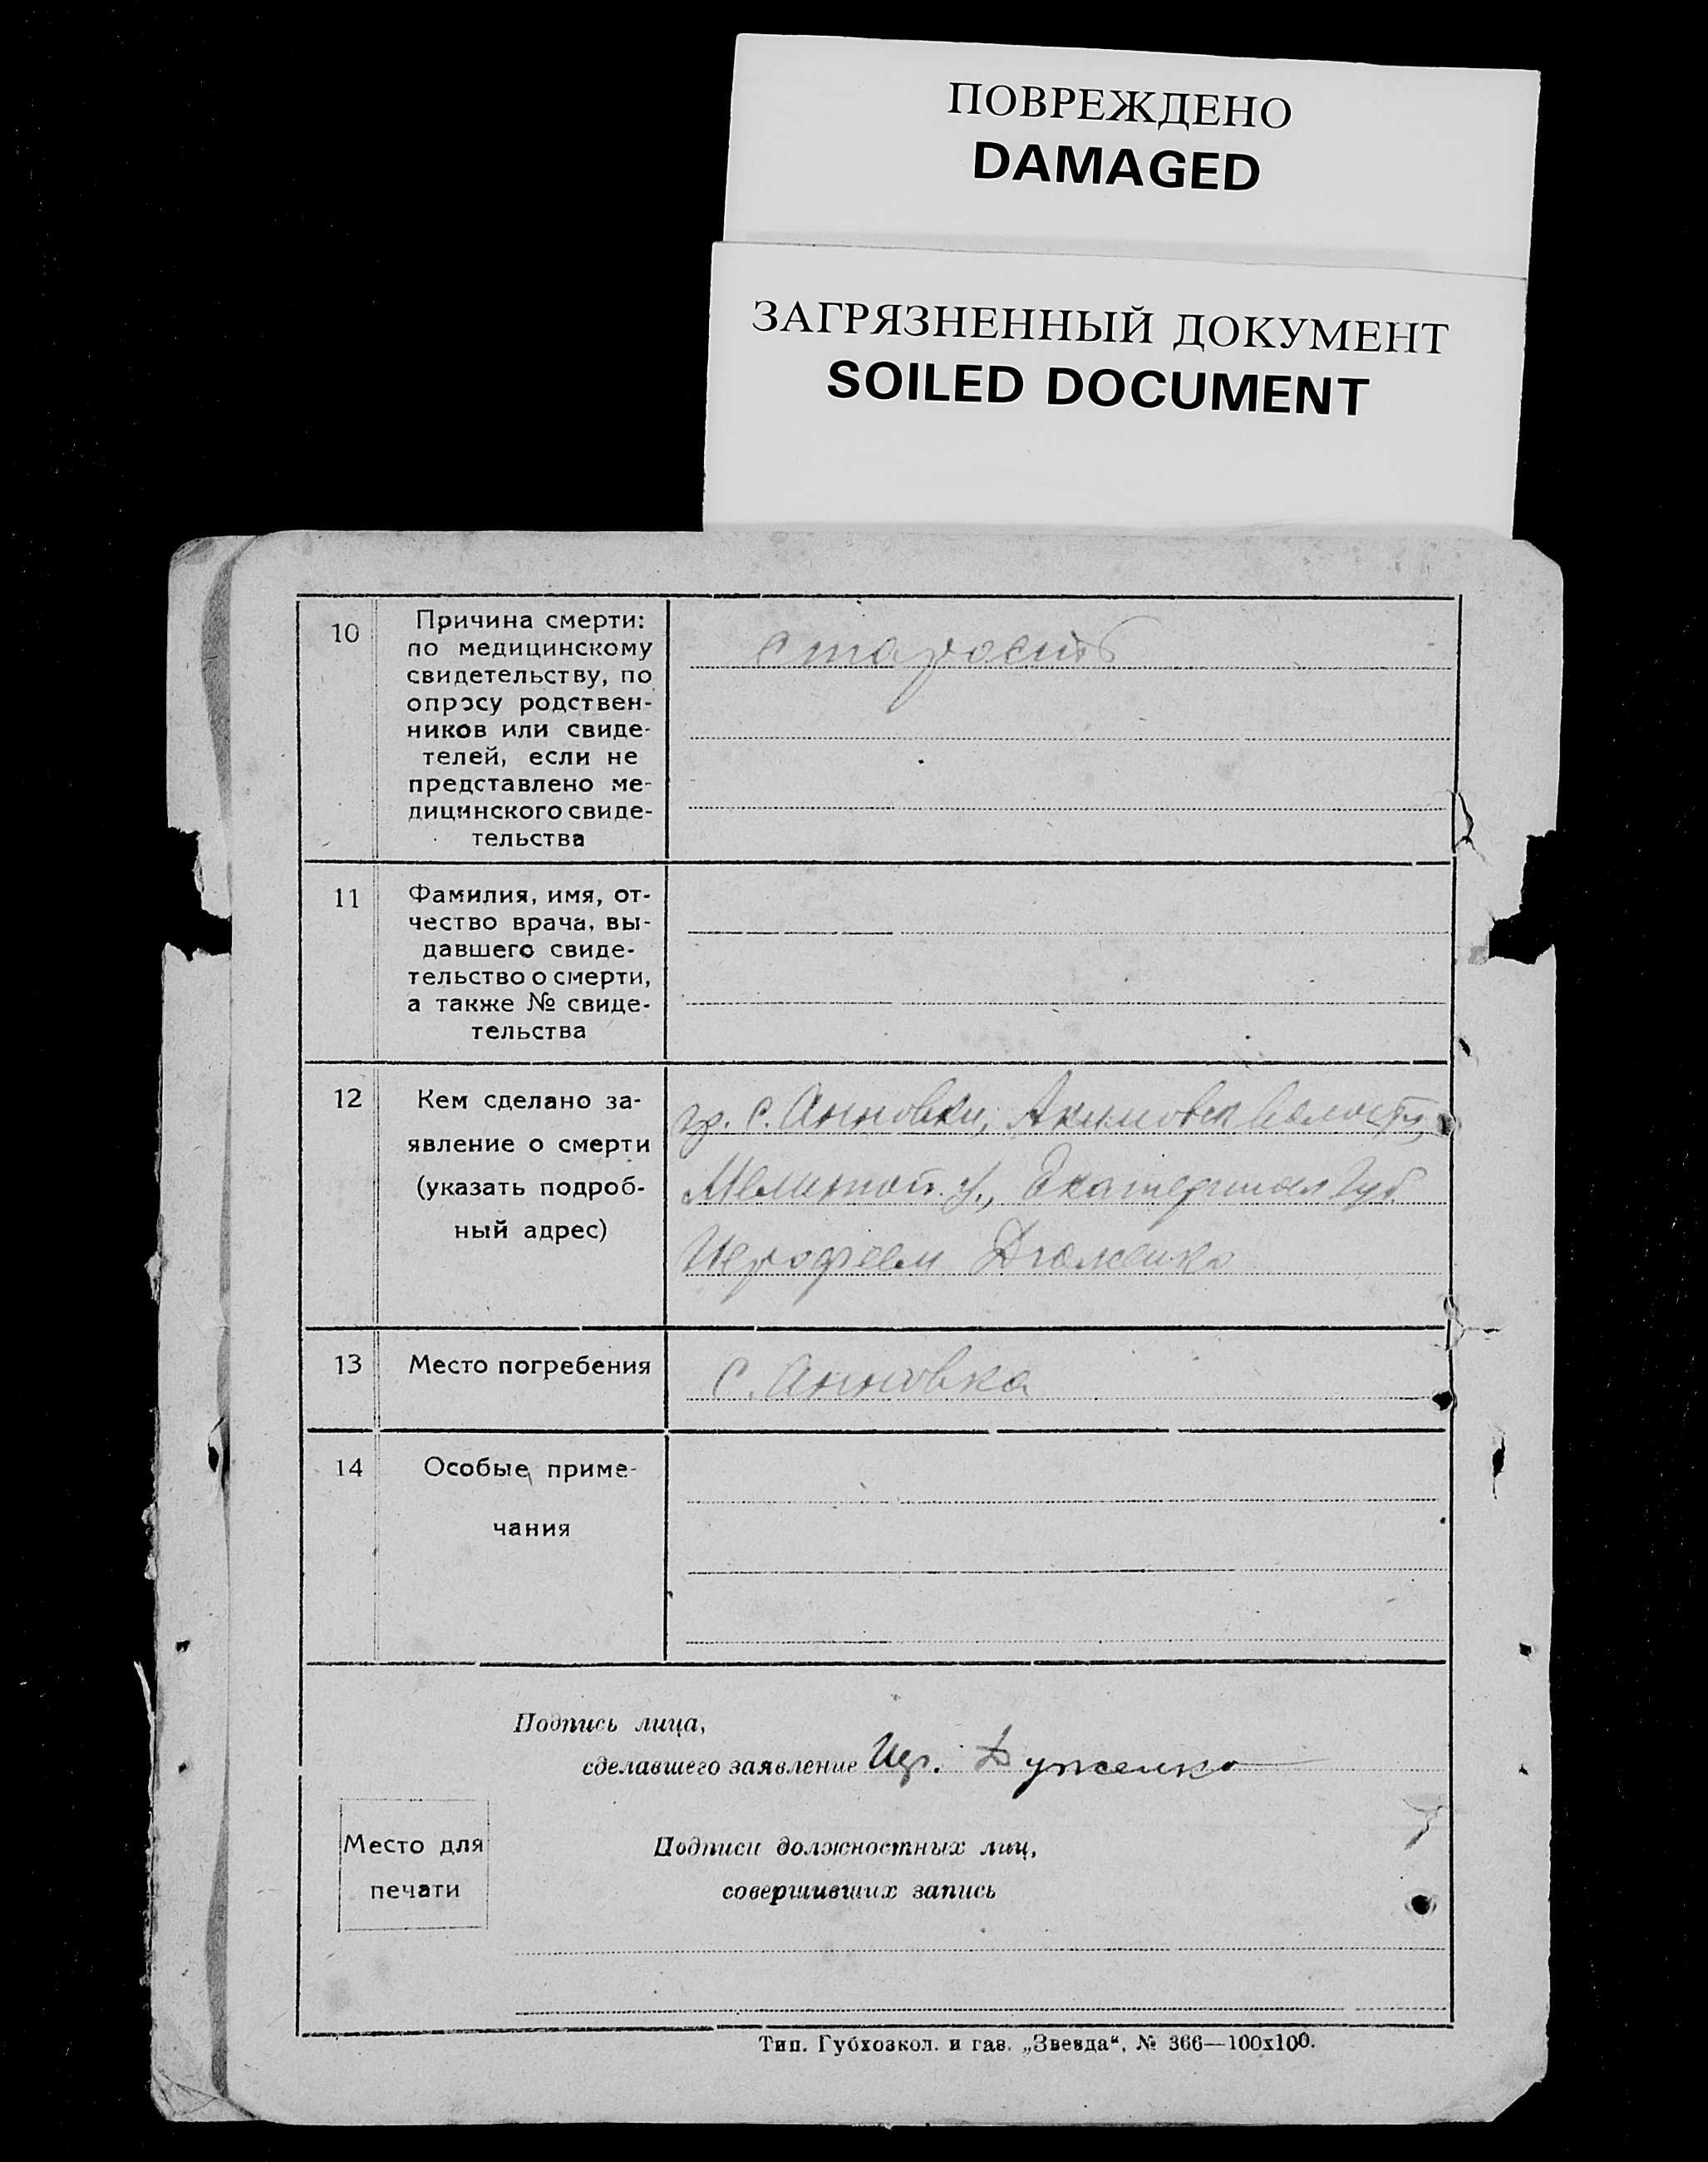 ПОВРЕЖДЕНО
DAMAGED
ЗАГРЯЗНЕННЫЙ ДОКУМЕНТ
SOILED DOCUMENT
10
Причина смерти:
по медицинскому
свидетельству, по
опросу родствен-
ников или свиде-
телей, если не
представлено ме-
дицинского свиде-
тельства
старость
11
Фамилия, имя, от-
чество врача, вы-
давшего свиде-
тельство о смерти,
а также № свиде-
тельства
12
Кем сделано за-
явление о смерти
(указать подроб-
ный адрес)
гр. с. Анновки, Акимовск волости,
Мелитоп. у., Екатеринosл Губ
Иерофеем
13
Место погребения
с. Анновка
14
Особые приме-
чания
Подпись лица,
сделавшего заявление Иер. Дуженко
Место для
печати
Подписи должностных лиц,
совершивших запись
Тип. Губхозкол. и газ. „Звезда“, № 366—100х100.